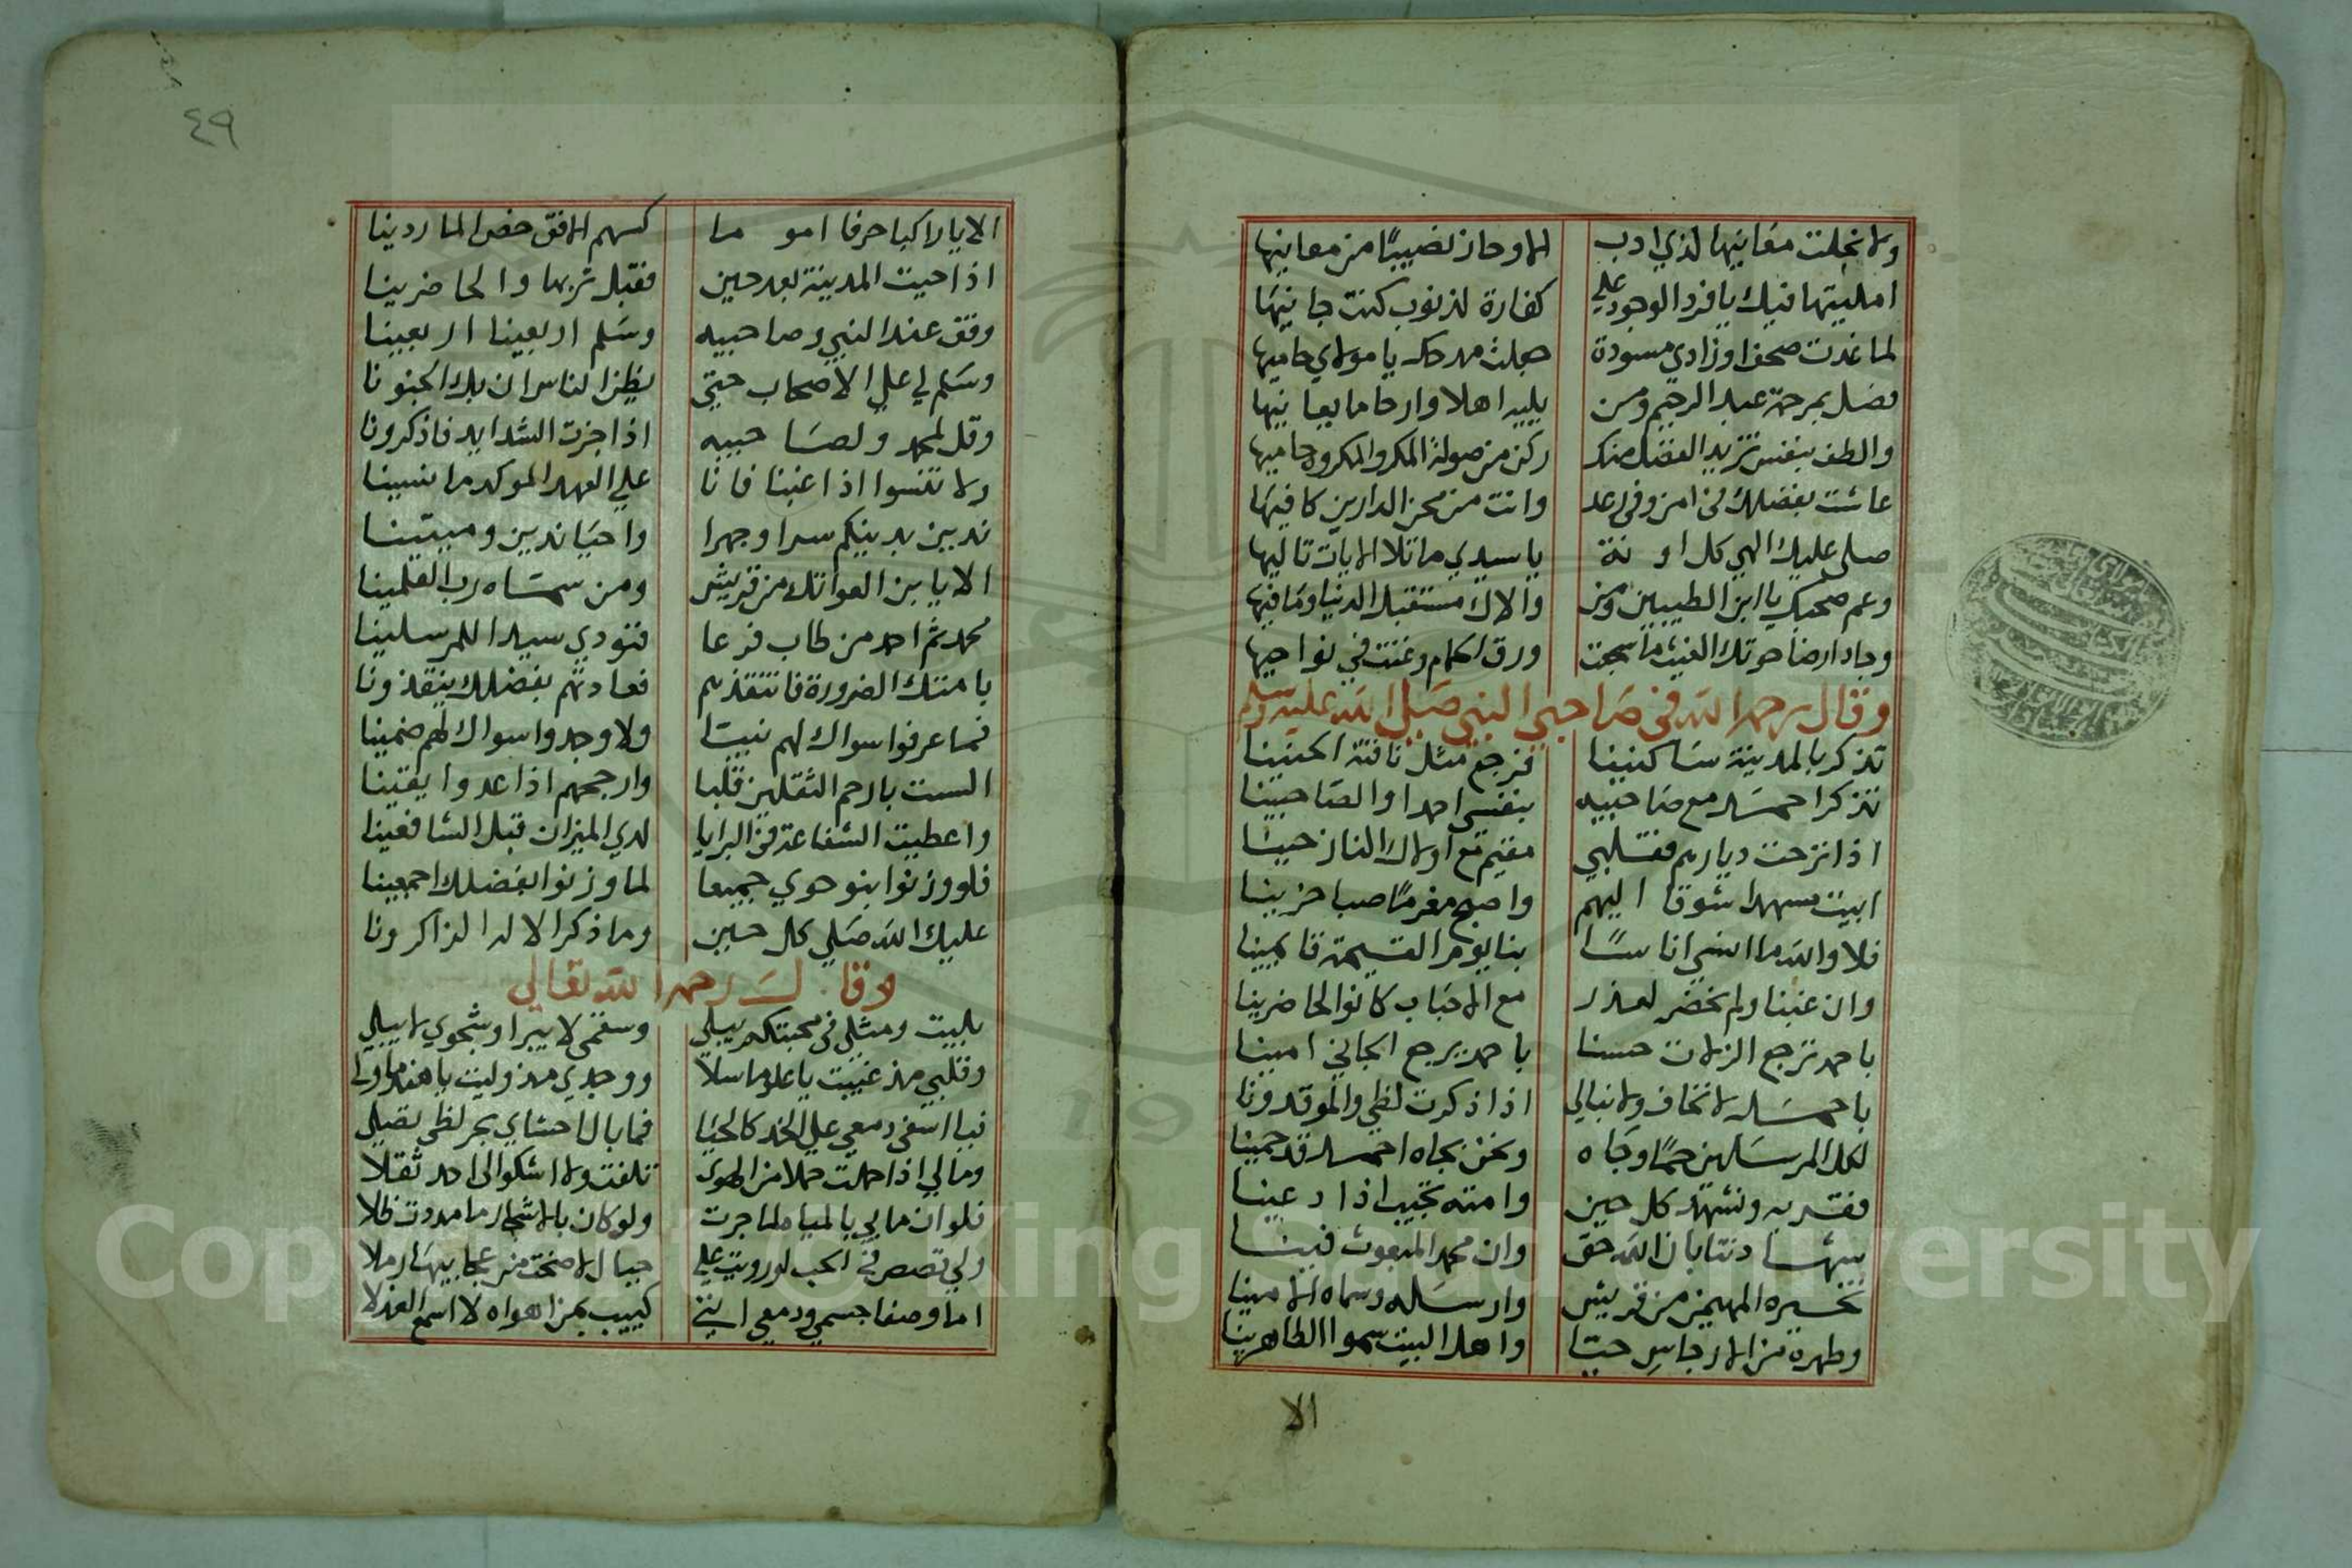 ولا نجلت معانيها لذي ادب الا وحاز نصيبًا من معانيها
امليتها فيك يا فرد الوجود علي كفارة لذنوب كنت جانيها
لما غدت صحفا وزادي مسودة جعلت مدحك يا مولاي حاميها
فصل بمرحمة عبد الرحيم ومن يليه اهلا وارحاما يعانيها
والطف بنفس تزيد الفضل منك ركن من صولة المكر والمكروه حاميها
عاشت بفضلك في امن وفي رغد وانت من محن الدارين كافيها
صلى عليك الهي كل اونة يا سيدي ما تلا الايات تاليها
وعم صحبك يا ابن الطيبين ومن والاك مستقبل الدنيا وما فيها
وجاد ارضا حوتك الغيث ما سجعت ورق الحمام وغنت في نواحيها
وقال رحمه الله في صاحبي النبي صلى الله عليه وسلم
تذكر بالمدينة ساكنينا فرجع مثل ناقته الحنينا
تذكر احمد مع صاحبيه بنفسي احمدا والصاحبينا
اذا نزحت ديارهم فقلبي مقيم مع اولاك النازحينا
ابيت مسهدا شوقا اليهم واصبح مغرمًا صبا حزينا
فلا والله ما انسي اناسًا بنا يوم القيمة قايمينا
وان غبنا ولم نحضر لعذر مع الاحباب كانوا الحاضرينا
باحمد ترجع الزلات حسنا باحمد يرجع الجاني امينا
باحمد لا نخاف ولا نبالي اذا ذكرت لظي والموقدونا
لكل المرسلين حمًا وجاه ونحن بجاه احمد قد حمينا
فقد به ونشهد كل حين وامته نجيب اذا دعينا
شهادتنا بان الله حق وان محمد المبعوث فينا
تخيره المهيمن من قريش وارسله وسماه الامينا
وطهره من الارجاس حتا واهل البيت سموا الطاهرينا
الا
٤٩
الا يا راكبا حرفا امو ما كسهم الافق خض الماردينا
اذا حيت المدينة بعد حين فقبل تربها والحاضرينا
وقف عند النبي وصاحبيه وسلم اربعينا اربعينا
وسلم لي علي الاصحاب حتي يظن الناس ان بك الجنونا
وقل لمحمد ولصاحبيه اذا جزت الشدايد فاذكرونا
ولا تنسوا اذا غبنا فانا علي العهد الموكد ما نسينا
ندين بدينكم سرا وجهرا واحيا ندين وميتينا
الا يا بن العواتك من قريش ومن سماه رب العلمينا
محمد ثم احمد من طاب فرعا فنودي سيدا للمرسلينا
بامتك الضرورة فانتقذهم فعادتهم بفضلك ينقذونا
فما عرفوا سواك لهم نبيا ولا وجدوا سواك لهم ضمينا
الست بارحم الثقلين قلبا وارجحهم اذا عدوا يقينا
واعطيت الشفاعة في البرايا لدي الميزان قبل الشافعينا
فلو وزنوا بنو حوي جميعا لما وزنوا بفضلك اجمعينا
عليك الله صلي كل حين وما ذكر الاله الذاكرونا
وقال رحمه الله تعالي
بليت ومثلي في محبتكم يبلي وسقمي لا يبرا وشجوي لا يبلي
وقلبي مذ غيبت يا علو ما سلا ووجدي مذ وليت يا هند ما ولي
فيا اسفي دمعي علي الخد كالحيا فما بال احشاي بحر لظي تصلي
ومالي اذا حملت حملا من الهوي تلفت ولا اشكو الى احد ثقلا
فلو ان ما بي بالمياه لما جرت ولو كان بالاشجار ما مددت ظلا
ولي قصص في الحب لو رويت علي جبال لاضحت من عجايبها رملا
اما وصفا جسمي ودمعي انني كييب بمن اهواه لا اسمع العذلا
Copyright © King Saud University